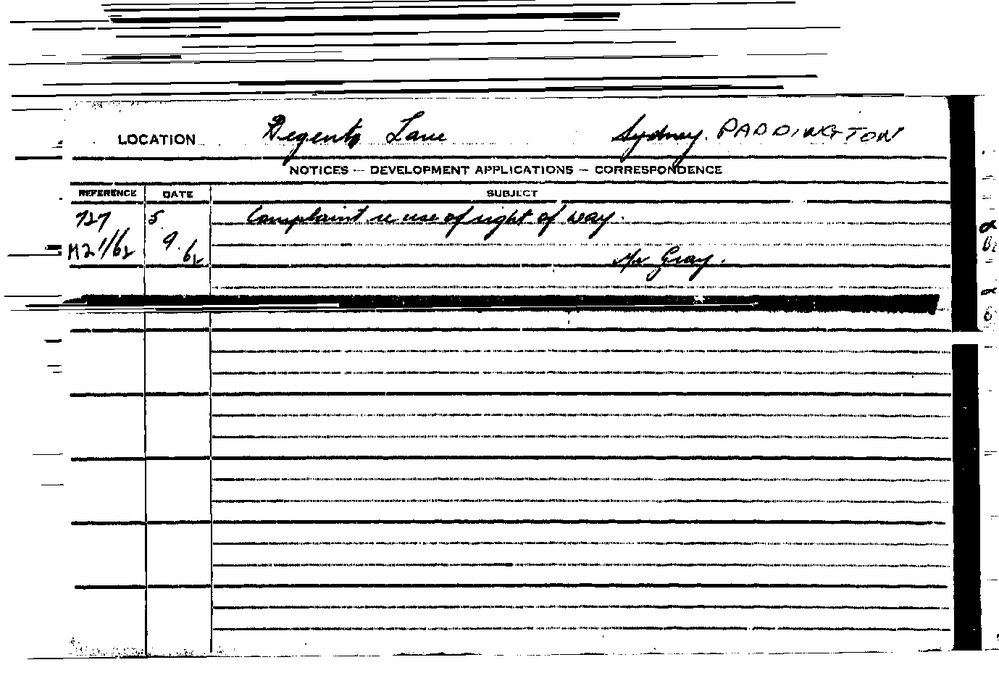 LOCATION Regents Lane Sydney. PADDINGTON
NOTICES — DEVELOPMENT APPLICATIONS — CORRESPONDENCE
REFERENCE DATE SUBJECT
727 5 Complaint re use of right of way.
9
62 Mr Gray.